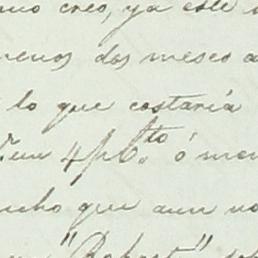 creo, ya este
menos dos meses a
lo que costaria
un 4 p% ó men
ucho que aun no
"Robert"